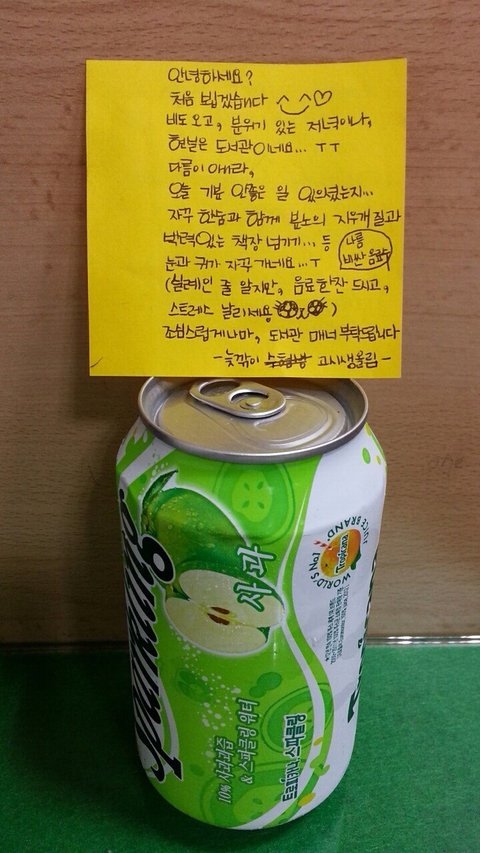 안녕하세요?
처음 뵙겠습니다 ^_^♡
비도 오고, 분위기 있는 저녁이나,
현실은 도서관이네요... ㅜㅜ
다름이 아니라,
오늘 기분 안좋은 일 있으셨는지...
자꾸 한숨과 함께 분노의 지우개질과
박력있는 책장 넘기기... 등
나름
비싼 음료
눈과 귀가 자꾸 가네요...ㅜ
(실례인 줄 알지만, 음료한잔 드시고,
스트레스 날리세용 )
조심스럽게나마, 도서관 매너 부탁드립니다
- 늦깎이 고시생올림 -
Sparkling
사과
WORLD'S No.1 JUICE BRAND.
Tropicana
10% 사과과즙
& 스파클링 워터
트로피카나 스파클링